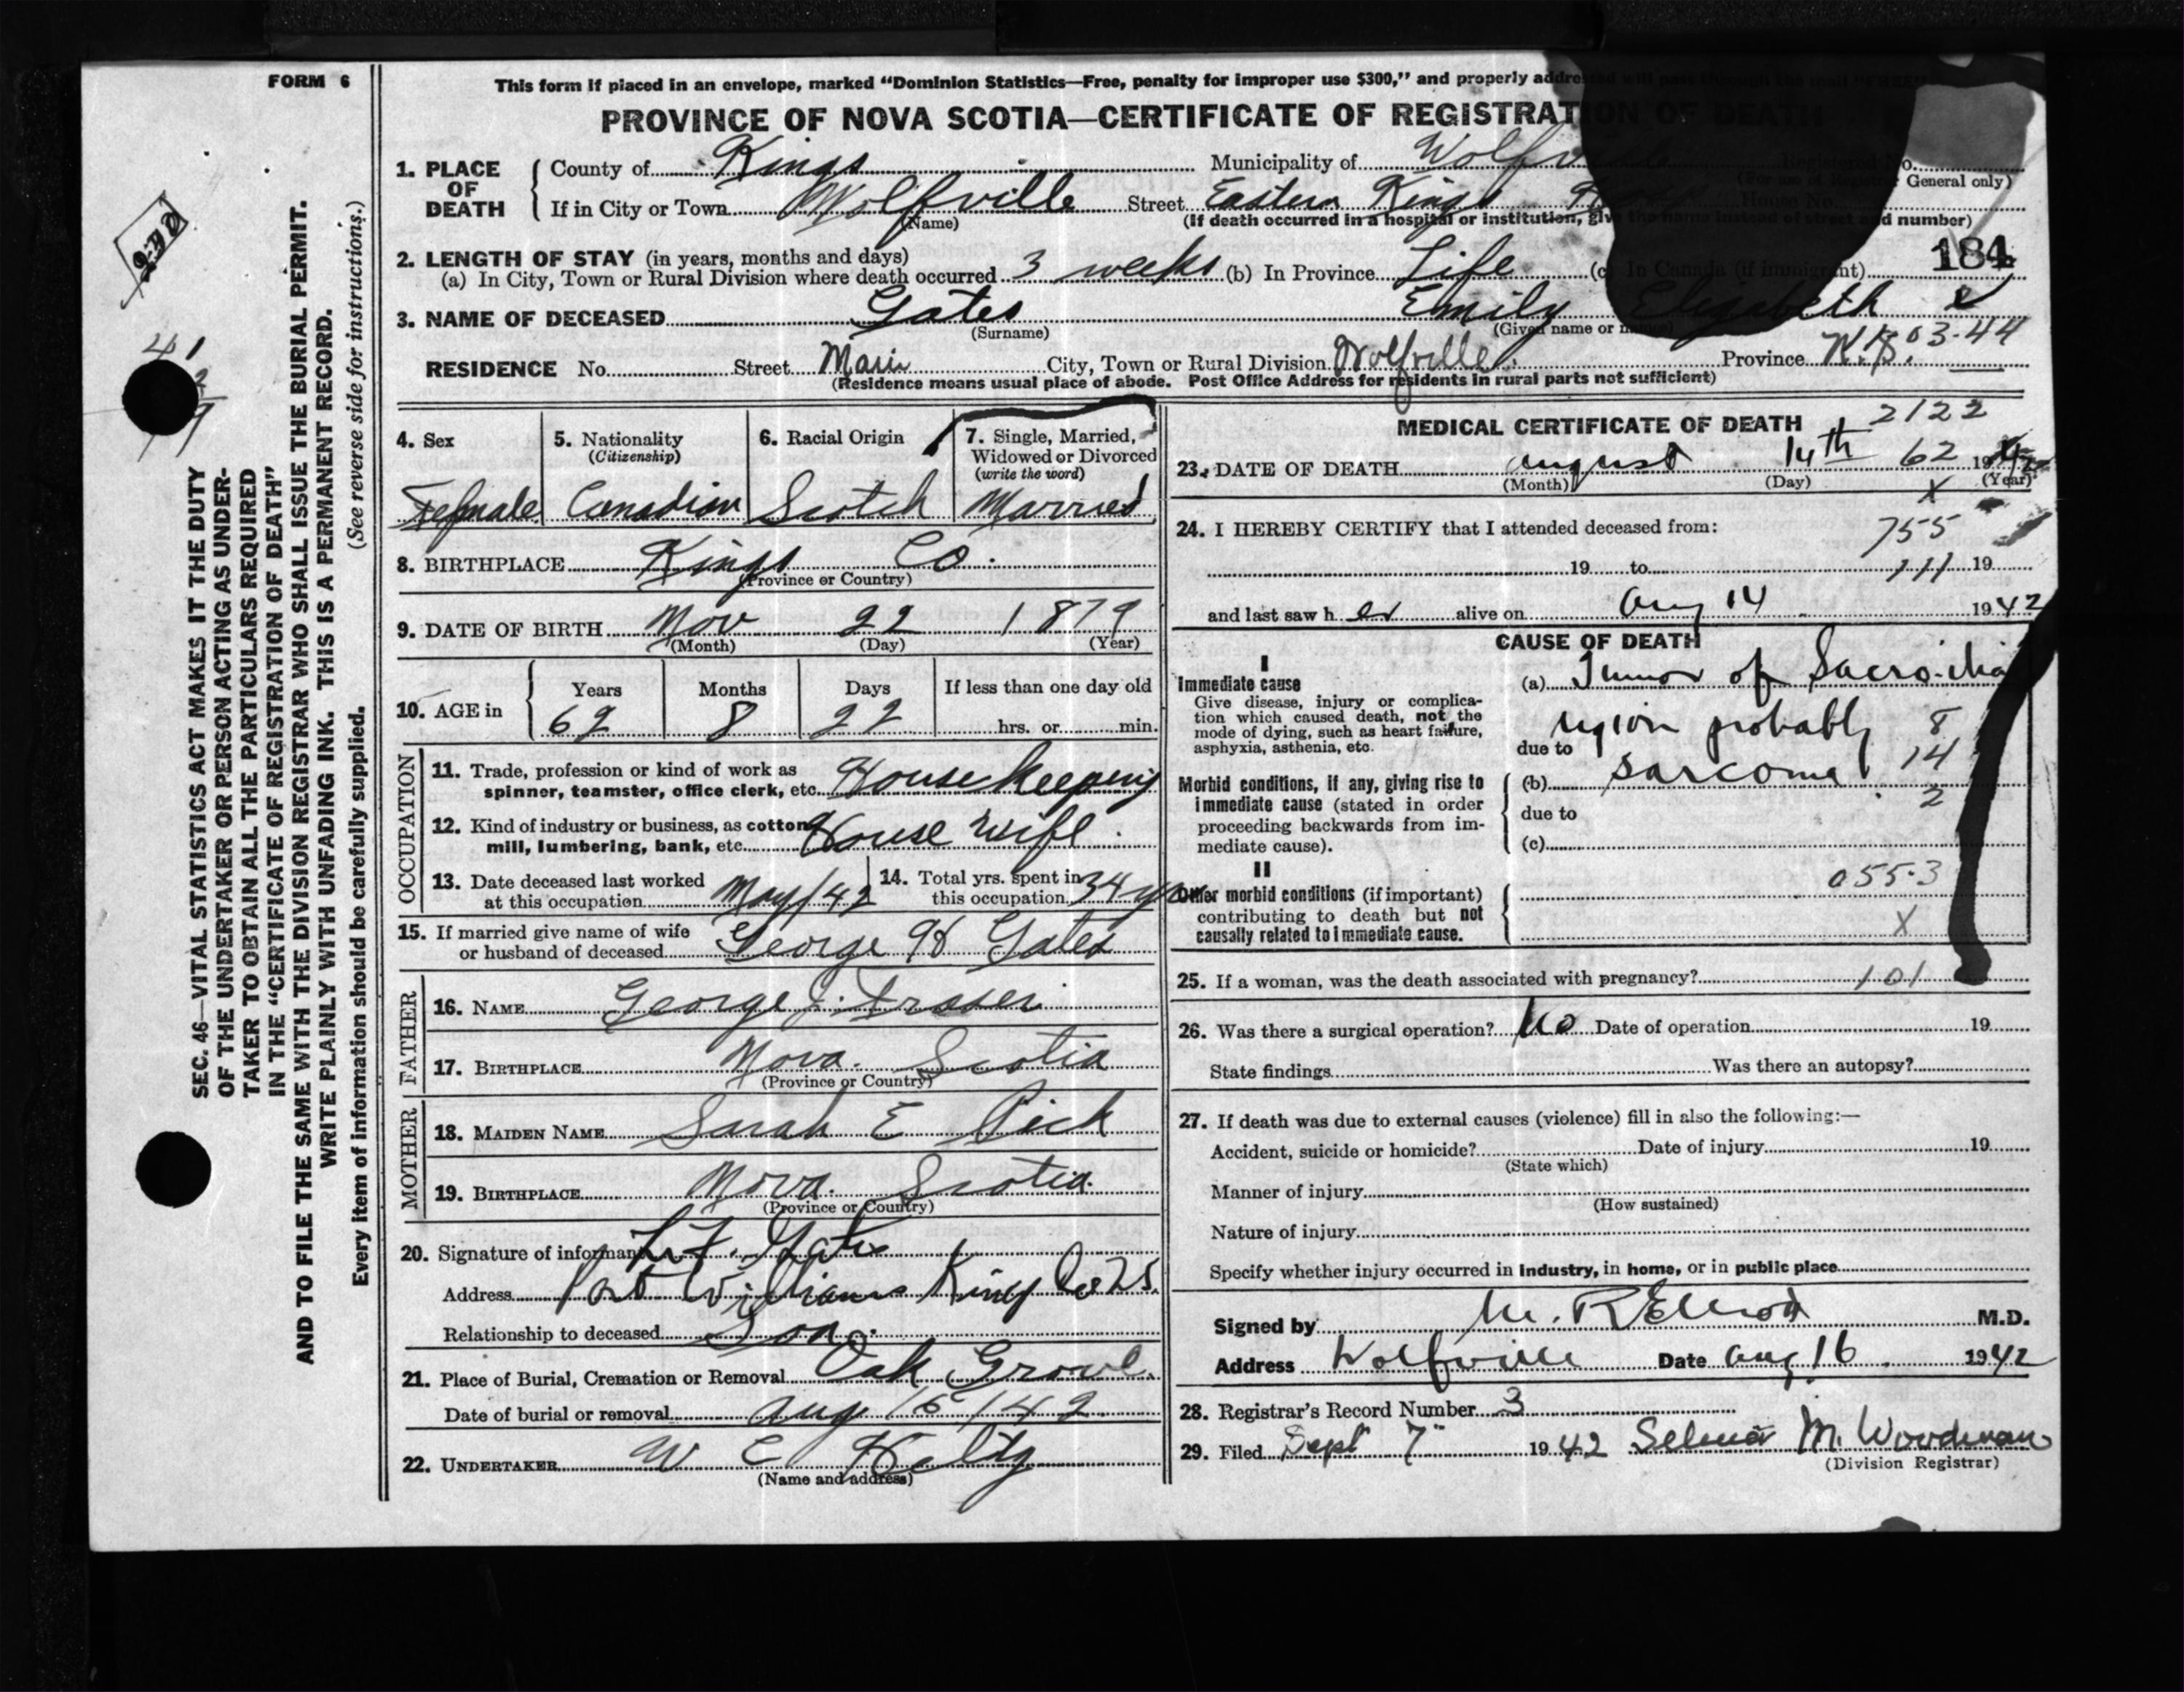 FORM 6
This form if placed in an envelope, marked "Dominion Statistics—Free, penalty for improper use $300," and properly addressed will pass through the mail
PROVINCE OF NOVA SCOTIA—CERTIFICATE OF REGISTRATION OF DEATH
1. PLACE OF DEATH
County of Kings Municipality of Wolfville Registered No.
General only)
If in City or Town Wolfville Street Eastern Kings House No.
(Name) (If death occurred in a hospital or institution, give the name instead of street and number)
2. LENGTH OF STAY (in years, months and days) 184
(a) In City, Town or Rural Division where death occurred 3 weeks (b) In Province Life (c) In Canada (if immigrant)
3. NAME OF DECEASED Gates Emily Elizabeth
(Surname) (Given name or names)
RESIDENCE No. Street Main City, Town or Rural Division Wolfville Province N.S. 03-44
(Residence means usual place of abode. Post Office Address for residents in rural parts not sufficient)
4. Sex 5. Nationality 6. Racial Origin 7. Single, Married,
(Citizenship) Widowed or Divorced
(write the word)
Female Canadian Scotch Married
8. BIRTHPLACE Kings Co.
(Province or Country)
9. DATE OF BIRTH Nov 22 1879
(Month) (Day) (Year)
10. AGE in Years Months Days If less than one day old
62 8 22 hrs. or min.
OCCUPATION
11. Trade, profession or kind of work as
spinner, teamster, office clerk, etc. House keeping
12. Kind of industry or business, as cotton
mill, lumbering, bank, etc. House wife.
13. Date deceased last worked
at this occupation May/42
14. Total yrs. spent in
this occupation 34 yrs
15. If married give name of wife
or husband of deceased George H Gates
FATHER
16. NAME George J. Fraser
17. BIRTHPLACE Nova Scotia
(Province or Country)
MOTHER
18. MAIDEN NAME Sarah E
19. BIRTHPLACE Nova Scotia
(Province or Country)
20. Signature of informant Gates
Address Port Williams Kings Co NS.
Relationship to deceased Son.
21. Place of Burial, Cremation or Removal Oak Grove.
Date of burial or removal Aug 16/42
22. UNDERTAKER W C
(Name and address)
MEDICAL CERTIFICATE OF DEATH 2122
23. DATE OF DEATH August 14th 62 1942
(Month) (Day) (Year)
X
24. I HEREBY CERTIFY that I attended deceased from: 755
19 to 111 19
and last saw her alive on Aug 14 1942
CAUSE OF DEATH
I
Immediate cause
Give disease, injury or complica-
tion which caused death, not the
mode of dying, such as heart failure,
asphyxia, asthenia, etc.
(a) Tumor of Sacro-iliac
region probably 8
due to 14
(b) sarcoma 2
Morbid conditions, if any, giving rise to
immediate cause (stated in order
proceeding backwards from im-
mediate cause).
due to
(c)
II 055.3
Other morbid conditions (if important)
contributing to death but not
causally related to immediate cause. X
25. If a woman, was the death associated with pregnancy? 101
26. Was there a surgical operation? No Date of operation 19
State findings Was there an autopsy?
27. If death was due to external causes (violence) fill in also the following:—
Accident, suicide or homicide? Date of injury 19
(State which)
Manner of injury
(How sustained)
Nature of injury
Specify whether injury occurred in industry, in home, or in public place
Signed by M. R Elliott M.D.
Address Wolfville Date Aug 16 1942
28. Registrar's Record Number 3
29. Filed Sept 7 1942 Selma M. Woodman
(Division Registrar)
SEC. 46—VITAL STATISTICS ACT MAKES IT THE DUTY
OF THE UNDERTAKER OR PERSON ACTING AS UNDER-
TAKER TO OBTAIN ALL THE PARTICULARS REQUIRED
IN THE "CERTIFICATE OF REGISTRATION OF DEATH"
AND TO FILE THE SAME WITH THE DIVISION REGISTRAR WHO SHALL ISSUE THE BURIAL PERMIT.
WRITE PLAINLY WITH UNFADING INK. THIS IS A PERMANENT RECORD.
Every item of information should be carefully supplied. (See reverse side for instructions.)